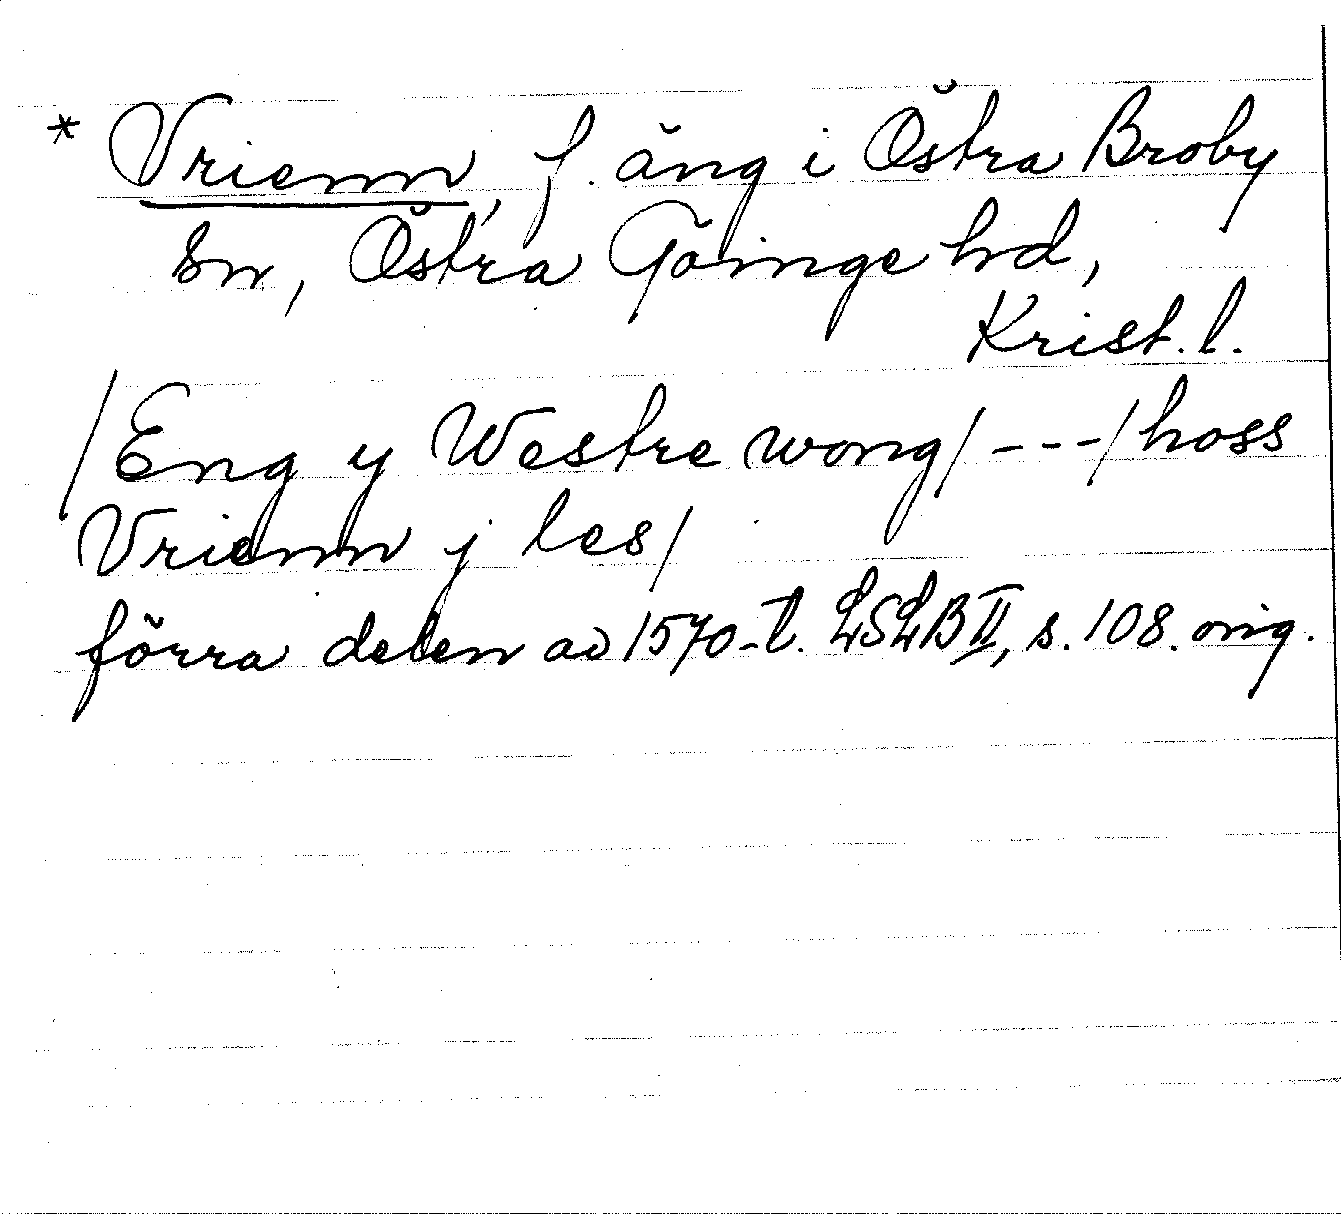 * Vrienn, f. äng i Östra Broby
sn, Östra Göinge hd,
Krist. l.
/Eng y Westre wong/ ---/hoss
Vrienn j les/
förra delen av 1570-t. LSLB II, s. 108. orig.